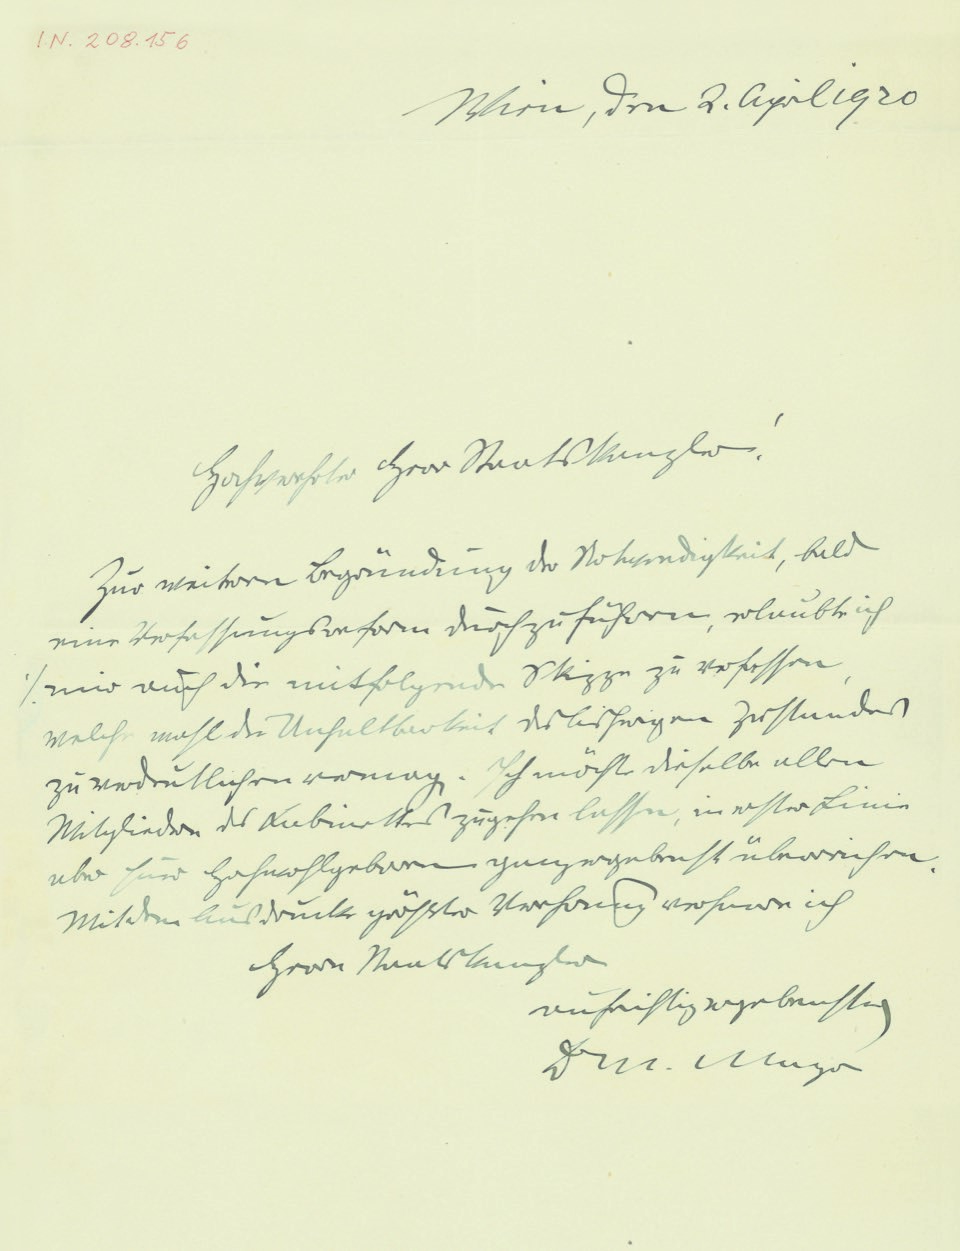 I.N. 208.156
Wien, den 2. April 1920
Hochverehrter Herr Staatskanzler!
Zur weiteren Begründung der Notwendigkeit, bald
eine Verfassungsreform durchzuführen, erlaubte ich
./. mir auch die mitfolgende Skizze zu verfassen,
welche wohl die Unhaltbarkeit des bisherigen Zustandes
zu verdeutlichen vermag. Ich möchte dieselbe allen
Mitgliedern des Kabinettes zugehen lassen, in erster Linie
aber Euer Hochwohlgeboren ganz ergebenst überreichen.
Mit dem Ausdrucke größter Verehrung verharre ich
Herrn Staatskanzler
aufrichtig ergebenster
Dr M. Mayr